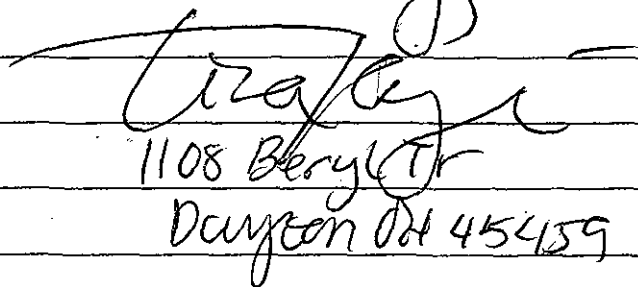 1108 Beryl Tr
Dayton OH 45459